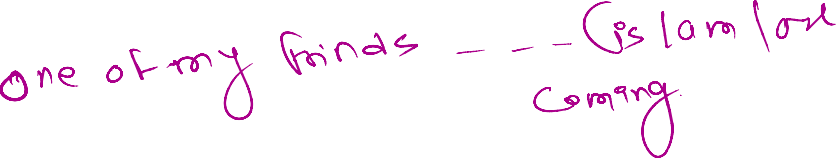 one of my frinds - - - - (is/am/are
coming.